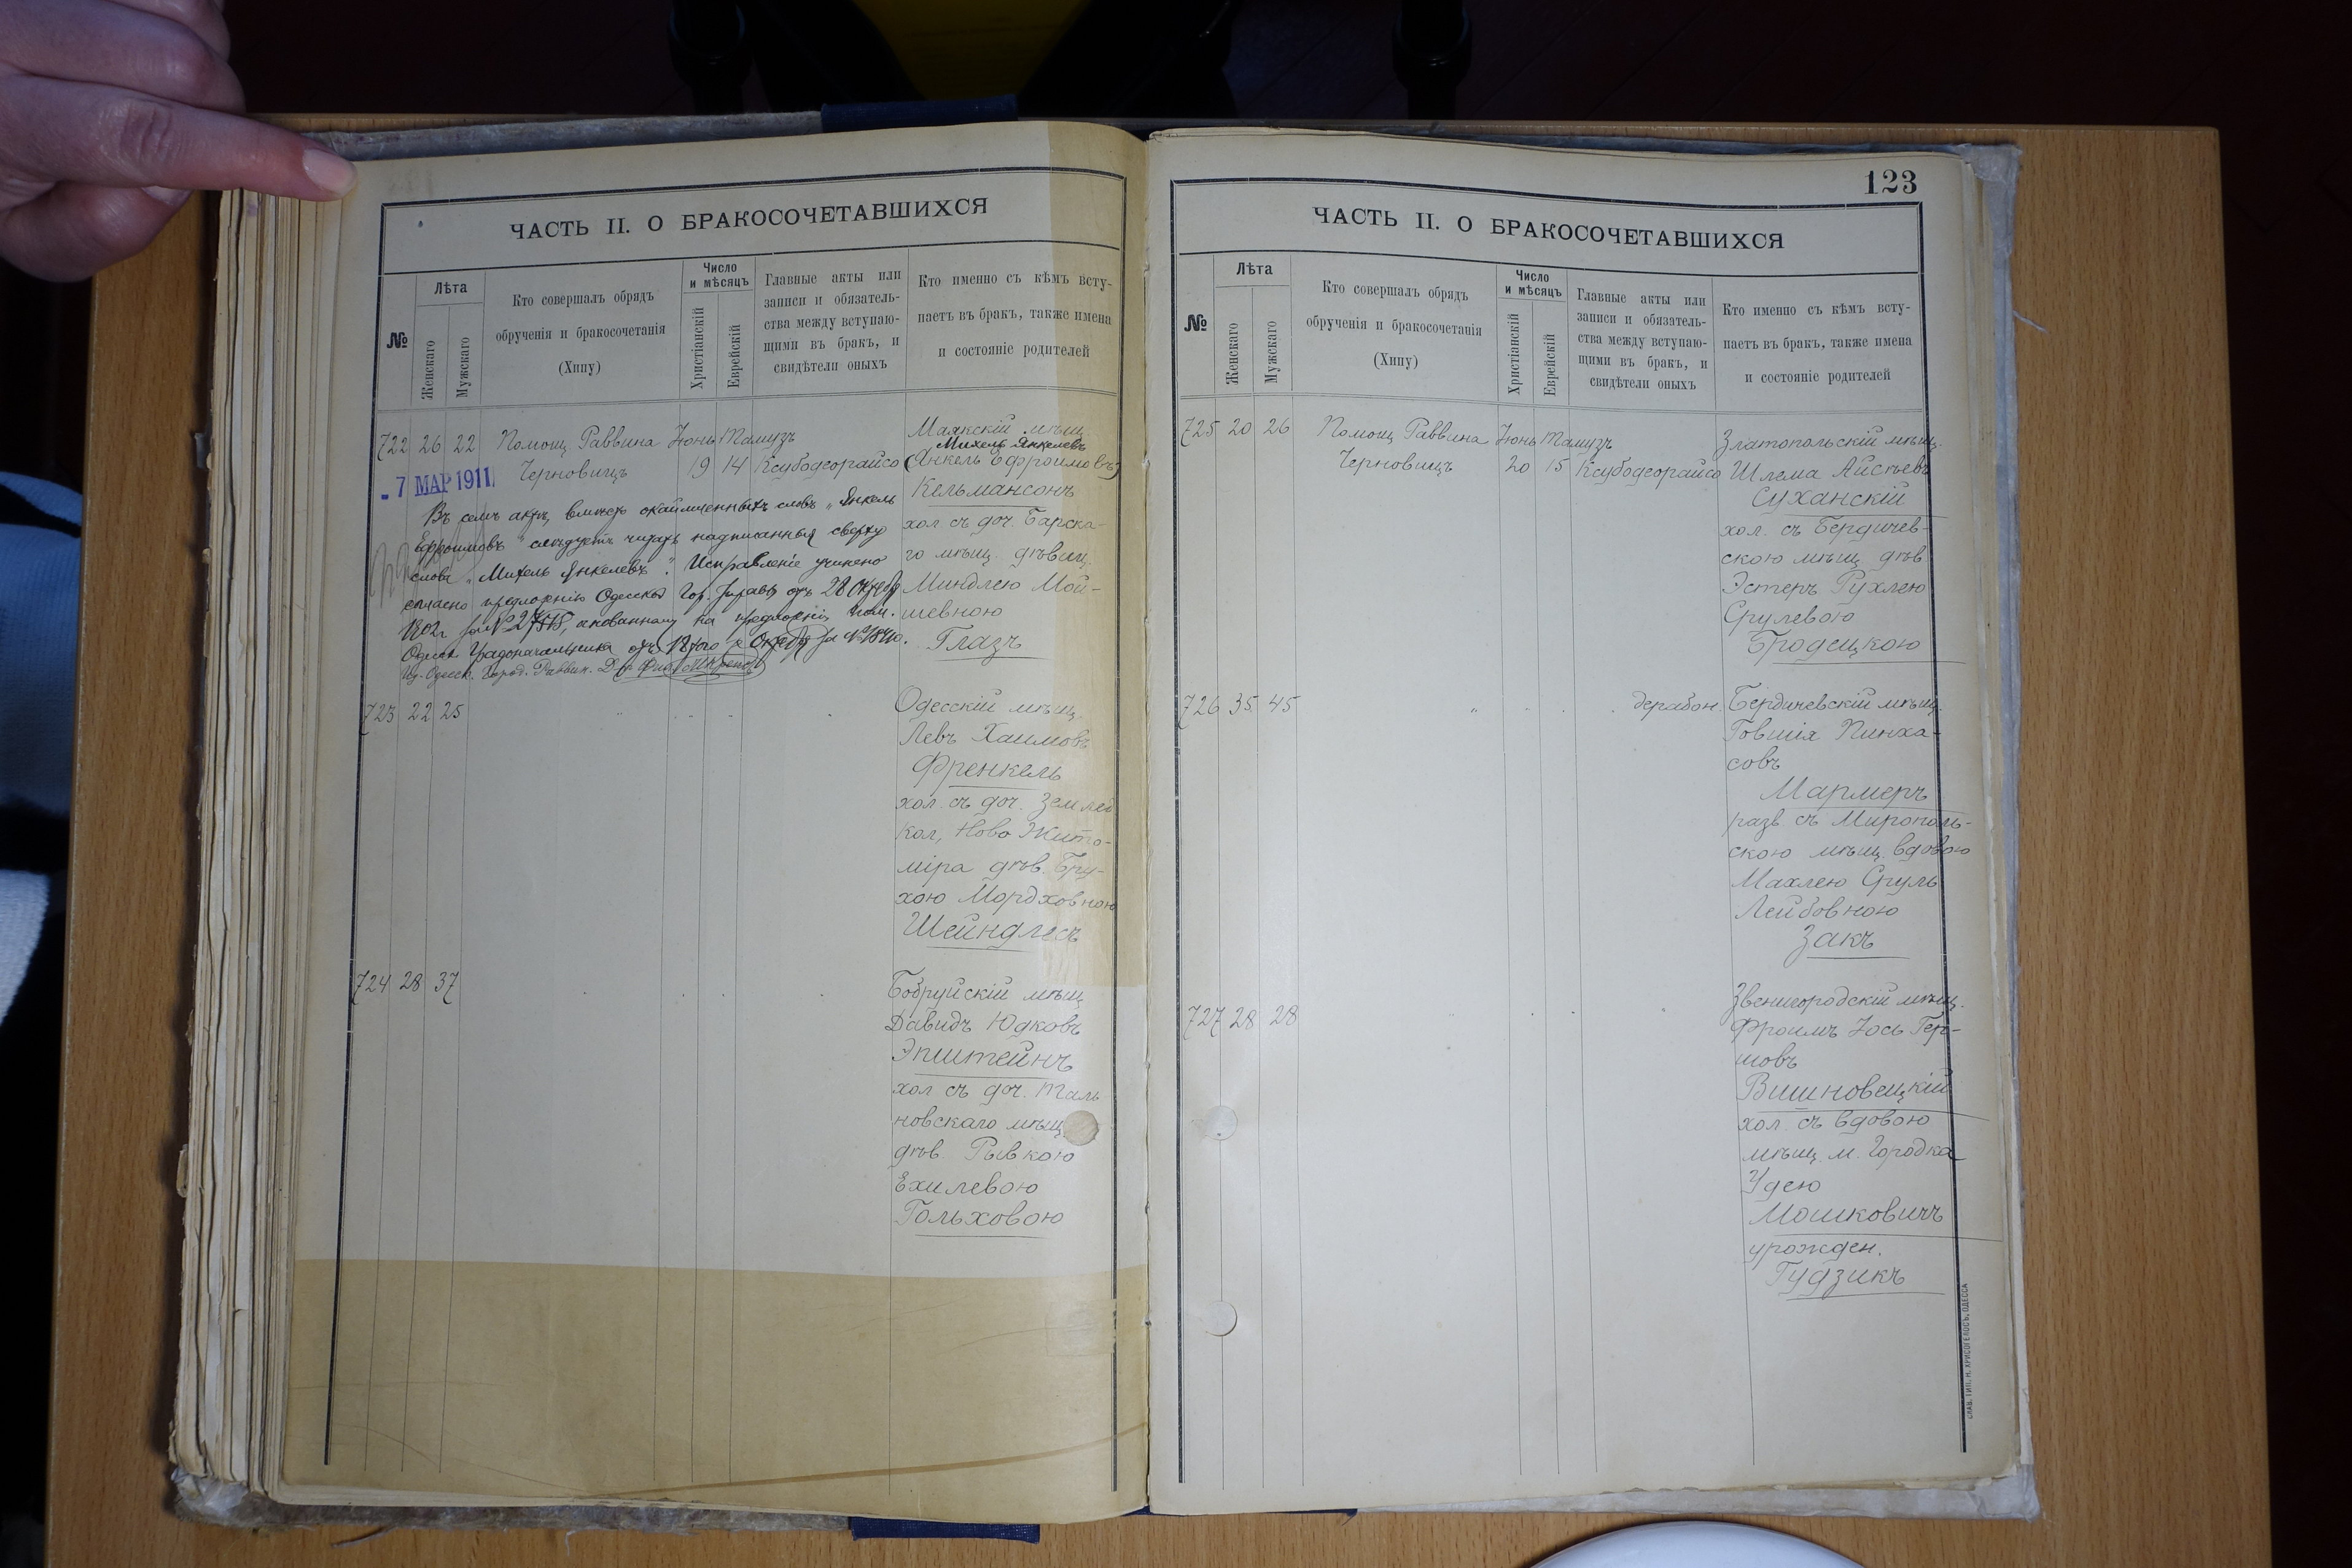 ЧАСТЬ II. О БРАКОСОЧЕТАВШИХСЯ
№
Лѣта
Женскаго
Мужскаго
Кто совершалъ обрядъ
обрученія и бракосочетанія
(Хипу)
Число
и мѣсяцъ
Христіанскій
Еврейскій
Главные акты или
записи и обязатель-
ства между вступаю-
щими въ бракъ, и
свидѣтели оныхъ
Кто именно съ кѣмъ всту-
паетъ въ бракъ, также имена
и состояніе родителей
722 26 22 Помощ. Раввина Іюнь Тамузъ
Черновицъ 19 14 Ксубодеорайсо
- 7 МАР 1911
Маякскій мѣщ.
Михель Янкелевъ
(Янкель Ефроимовъ)
Кельмансонъ
хол съ доч. Барска-
го мѣщ. дѣвиц.
Миндлею Мой-
шевною
Глазъ
Въ семъ актѣ, вмѣсто окаймленныхъ словъ „Янкель
Ефроимовъ" слѣдуетъ читать надписанныя сверху
слова „Михель Янкелевъ". Исправленіе учинено
согласно предложенію Одесской Гор. Управы отъ 28
Одесск. Градоначальника
Одесск. Город. Раввин. Д-р
723 22 25
Одесскій мѣщ.
Левъ Хаимовъ
Френкель
хол. съ доч. Землед
кол, Ново Жито-
міра дѣв. Бру-
хою Мордховною
Шейндлесъ
724 28 37
Бобруйскій мѣщ
Давидъ Юдковъ
Эпштейнъ
хол съ доч. Таль
новскаго мѣщ
дѣв. Рывкою
Ехилевою
Гольховою
123
ЧАСТЬ II. О БРАКОСОЧЕТАВШИХСЯ
№
Лѣта
Женскаго
Мужскаго
Кто совершалъ обрядъ
обрученія и бракосочетанія
(Хипу)
Число
и мѣсяцъ
Христіанскій
Еврейскій
Главные акты или
записи и обязатель-
ства между вступаю-
щими въ бракъ, и
свидѣтели оныхъ
Кто именно съ кѣмъ всту-
паетъ въ бракъ, также имена
и состояніе родителей
725 20 26 Помощ Раввина Іюнь Тамузъ
Черновицъ 20 15 Ксубодеорайсо
Златопольскій мѣщ.
Шлема Айсѣевъ
Суханскій
хол. съ Бердичев-
скою мѣщ дѣв
Эстеръ Рухлею
Срулевою
Бродецкою
726 35 45 дерабон.
Бердичевскій мѣщ.
Говшія Пинха-
совъ
Мармеръ
разв съ Мирополь-
скою мѣщ. вдовою
Махлею Сруль
Лейбовною
Закъ
727 28 28
Звенигородскій мѣщ.
Фроимъ Іось Гер-
шовъ
Вишновецкій
хол. съ вдовою
мѣщ. м. Городка
Удею
Мошковичъ
урожден.
Гудзикъ
СЛАВ. ТИП. Н. ХРИСОГЕЛОСЪ, ОДЕССА